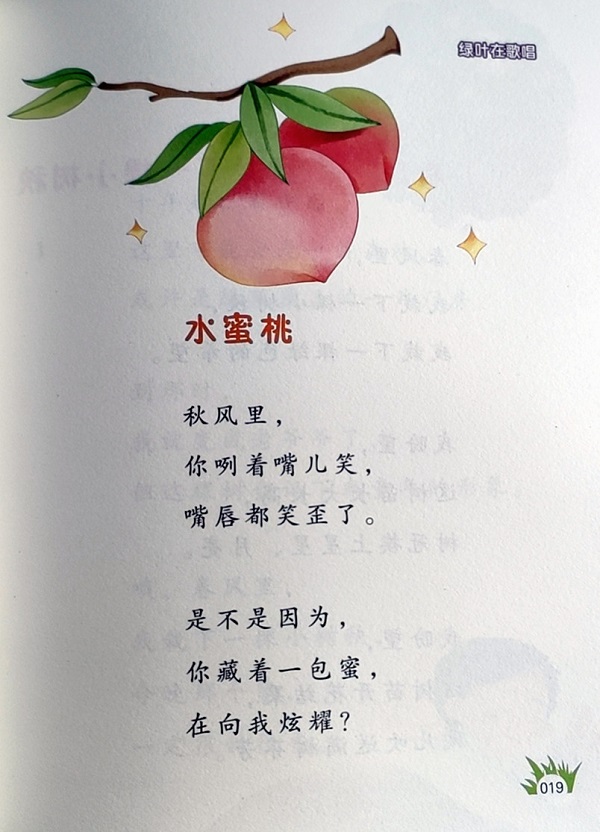 绿叶在歌唱
水蜜桃
秋风里，
你咧着嘴儿笑，
嘴唇都笑歪了。
是不是因为，
你藏着一包蜜，
在向我炫耀？
019